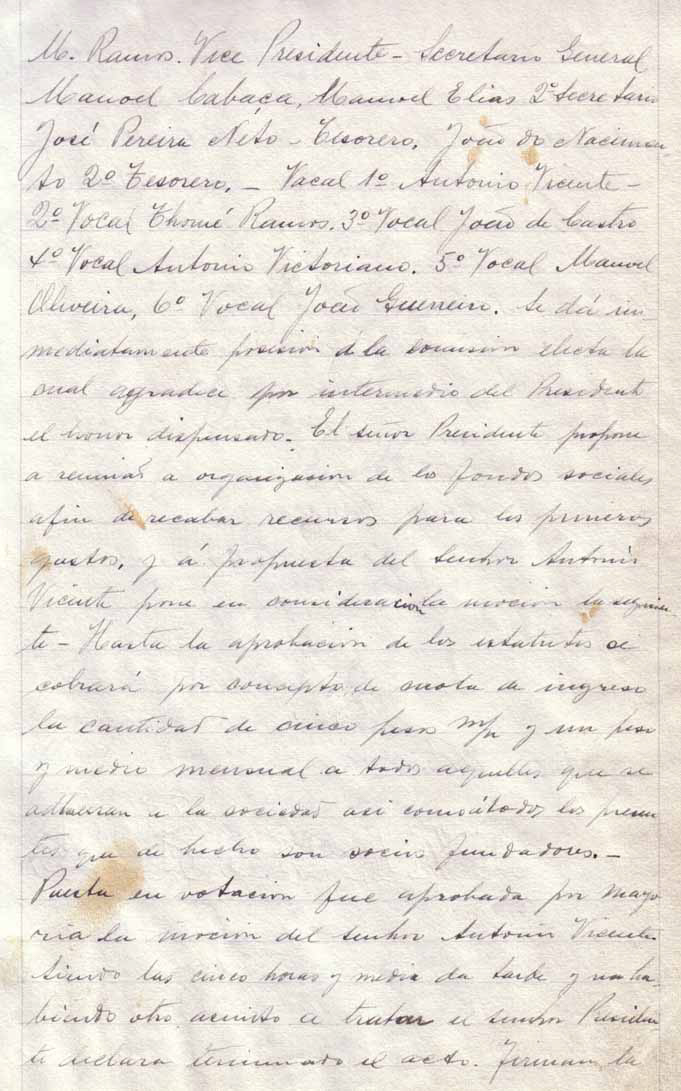 M. Ramos. Vice Presidente - Secretario General
Manoel Cabaça, Manuel Elias 2º Secretario
José Pereira Neto - Tesorero. João do Nacimen-
to 2º Tesorero. - Vocal 1º Antonio Vicente -
2º Vocal Thomé Ramos. 3º Vocal João de Castro
4º Vocal Antonio Victoriano. 5º Vocal Manoel
Oliveira, 6º Vocal João Guerreiro. Se dá in-
mediatamente posision á la comision electa la
cual agradece por intermedio del President
el honor dispensado. El señor Presidente propone
a organizasion de los fondos sociales
afin de recabar recursos para los primeros
gastos, y á propuesta del senhor Antonio
Vicente pone en consideracion la mocion la seguien
te - Hasta la aprobación de los estatutos se
cobrará por concepto de cuota de ingreso
la cantidad de cinco pesos m/n y un peso
y medio mensual a todos aquelles que se
adhieran a la sociedad asi como á todos los presen
tes que de hecho son socios fundadores. -
Puesta en votacion fue aprobada por mayo
ria la mocion del senhor Antonio Vicente
siendo las cinco horas y media da tarde y no ha-
biendo otro asunto a tratar el senhor Presiden
te declara terminado el acto. Firman la